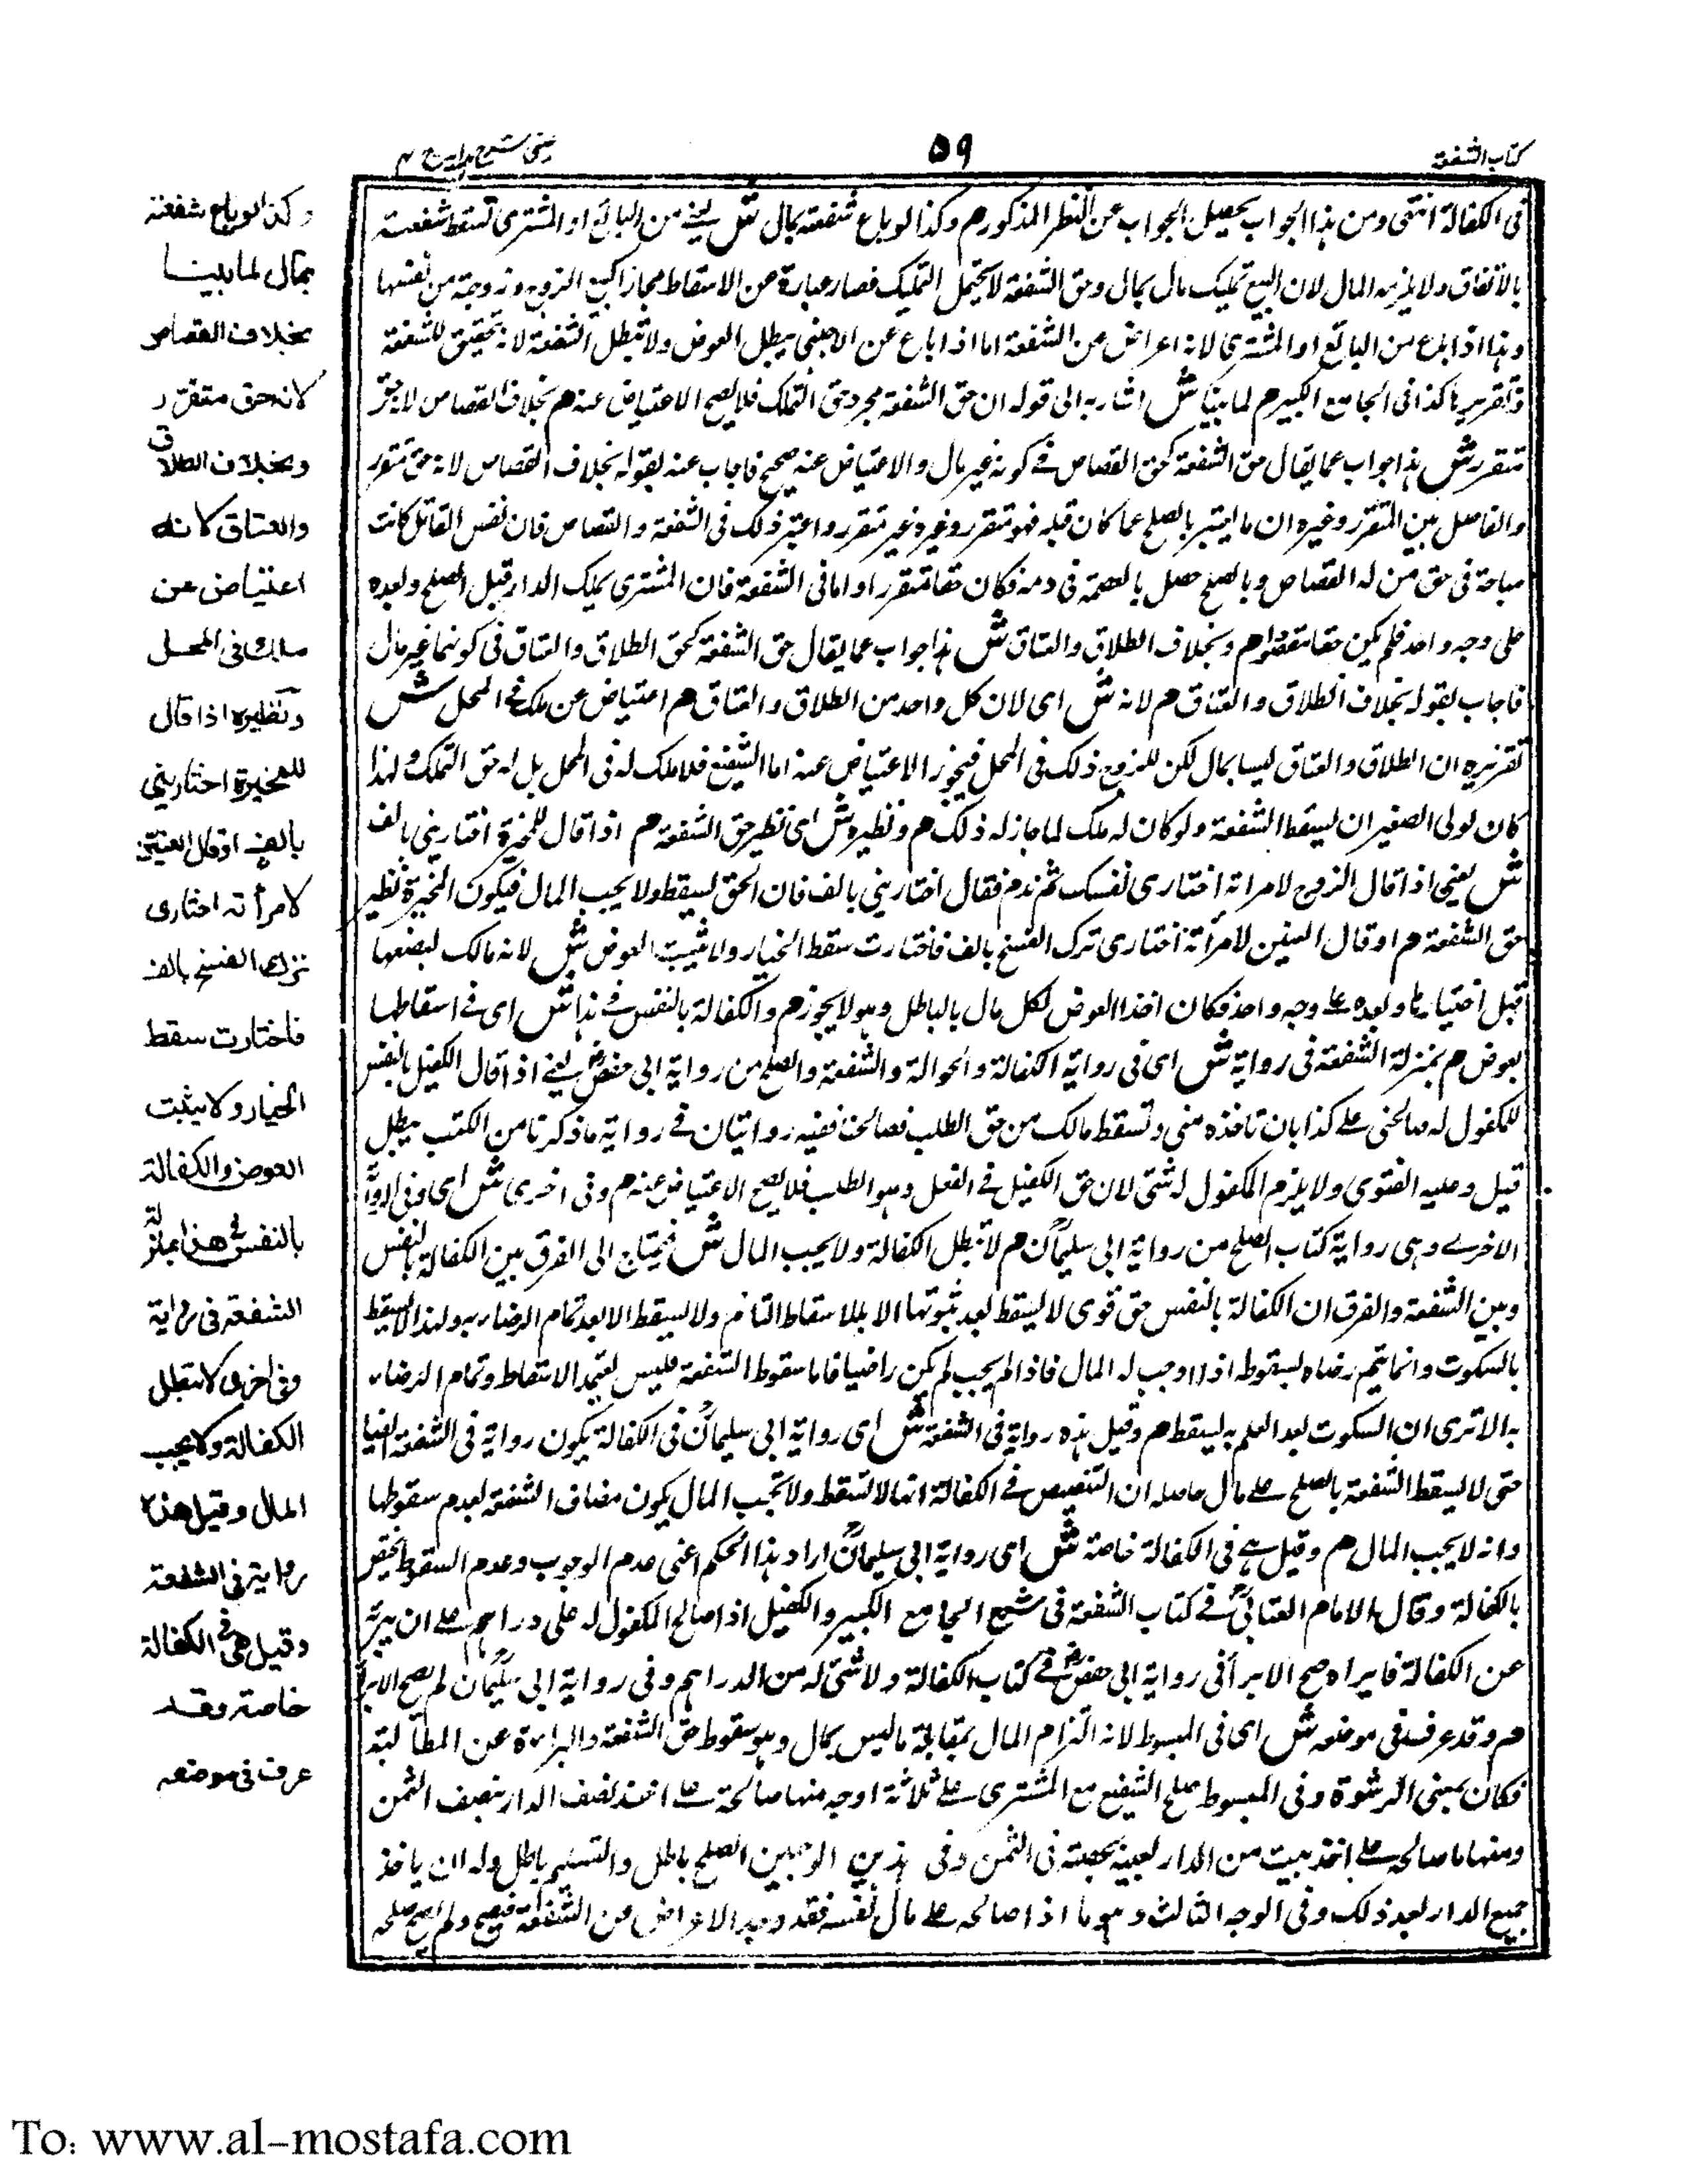 كتاب الشفعة
٥٩
عينى شرح هدايه ج ٤
فى الكفالة انتهى ومن هذا الجواب يحصل الجواب عن النظر المذكور م وكذا لو باع شفعته بمال ش يعنى من البائع او المشترى تسقط شفعته
بالاتفاق ولا يلزمه المال لان البيع تمليك مال بمال وحق الشفعة لا يحتمل التمليك فصار عبارة عن الاسقاط مجازا كبيع الزوج زوجته من نفسها
وهذا اذا باع من البائع او المشترى لانه اعراض من الشفعة اما اذا باع عن الاجنبى يبطل العوض ولا تبطل الشفعة لانه تحقيق للشفعة
وتقريرها كذا فى الجامع الكبير م لما بينا ش اشار به الى قوله ان حق الشفعة مجرد حق التملك فلا يصح الاعتياض عنه م بخلاف القصاص لانه حق
متقرر ش هذا جواب عما يقال حق الشفعة كحق القصاص فى كونه غير مال والاعتياض عنه صحيح فاجاب عنه بقوله بخلاف القصاص لانه حق متقرر
والفاصل بين المتقرر وغيره ان ما يتغير بالصلح عما كان قبله فهو متقرر وغيره غير متقرر واعتبر ذلك فى الشفعة والقصاص فان نفس القاتل كانت
مباحة فى حق من له القصاص وبالصلح حصل بالعصمة فى دمه فكان حقا متقررا واما فى الشفعة فان المشترى يملك الدار قبل الصلح وبعده
على وجه واحد فلم يكن حقا متقررا م وبخلاف الطلاق والعتاق ش هذا جواب عما يقال حق الشفعة كحق الطلاق والعتاق فى كونهما غير مال
فاجاب بقوله بخلاف الطلاق والعتاق م لانه ش اى لان كل واحد من الطلاق والعتاق م اعتياض عن ملك فى المحل ش
تقريره ان الطلاق والعتاق ليسا بمال لكن للزوج ذلك فى المحل فيجوز الاعتياض عنه اما الشفيع فلا ملك له فى المحل بل له حق التملك ولهذا
كان لولى الصغير ان يسقط الشفعة ولو كان له ملك لما جاز له ذلك م ونظيره ش اى نظير حق الشفعة م اذا قال للمخيرة اختارينى بالف
ش يعنى اذا قال الزوج لامراته اختارى نفسك ثم ندم فقال اختارينى بالف فان الحق يسقط ولا يجب المال فيكون المخيرة نظير
حق الشفعة م او قال العنين لامرأته اختارى ترك الفسخ بالف فاختارت سقط الخيار ولا يثبت العوض ش لانه مالك لبضعها
قبل اختيارها وبعده على وجه واحد فكان اخذ العوض لكل مال بالباطل وهو لا يجوز م والكفالة بالنفس فى هذا ش اى فى اسقاطها
بعوض م بمنزلة الشفعة فى رواية ش اى فى رواية الكفالة والحوالة والشفعة والصلح من رواية ابى حفص يعنى اذا قال الكفيل بالنفس
للمكفول له صالحنى على كذا بان تاخذه منى وتسقط مالك من حق الطلب فصالحنا ففيه روايتان فى رواية ما ذكرنا من الكتب يبطل
قيل وعليه الفتوى ولا يلزم المكفول له شئ لان حق الكفيل فى الفعل وهو الطلب فلا يصح الاعتياض عنه م وفى اخرى ش اى وفى الرواية
الاخرى وهى رواية كتاب الصلح من رواية ابى سليمان م لا تبطل الكفالة ولا يجب المال ش فيحتاج الى الفرق بين الكفالة بالنفس
وبين الشفعة والفرق ان الكفالة بالنفس حق قوى لا يسقط بعد ثبوتها الا بالاسقاط التام ولا يسقط الا بعد تمام الرضاء به ولهذا لا يسقط
بالسكوت وانما يتم رضاه بسقوطه اذا اوجب له المال فاذا لم يجب لم يكن راضيا فاما سقوط الشفعة فليس يعتمد الاسقاط وتمام الرضاء
به الا ترى ان السكوت بعد العلم به يسقط م وقيل هذه رواية فى الشفعة ش اى رواية ابى سليمان فى الكفالة يكون رواية فى الشفعة ايضا
حتى لا يسقط الشفعة بالصلح على مال حاصله ان التنصيص فى الكفالة انها لا تسقط ولا تجب المال يكون مضاف الشفعة لعدم سقوطها
وانه لا يجب المال م وقيل هى فى الكفالة خاصة ش اى رواية ابى سليمان اراد هذا الحكم اعنى عدم الوجوب وعدم السقوط يختص
بالكفالة وقال الامام العتابى فى كتاب الشفعة فى شرح الجامع الكبير والكفيل اذا صالح المكفول له على دراهم على ان يبرئه
عن الكفالة فابراه صح الابرأ فى رواية ابى حفص فى كتاب الكفالة ولا شئ له من الدراهم وفى رواية ابى سليمان لم يصح الابرأ
م وقد عرف فى موضعه ش اى فى المبسوط لانه التزام المال بمقابلة ما ليس بمال وهو سقوط حق الشفعة والبراءة عن المطالبة
فكان بمعنى الرشوة وفى المبسوط صلح الشفيع مع المشترى على ثلاثة اوجه منها صالحه على اخذ نصف الدار بنصف الثمن
ومنها ما صالحه على اخذ بيت من الدار بعينه بحصته فى الثمن وفى هذين الوجهين الصلح باطل والتسليم باطل وله ان ياخذ
جميع الدار بعد ذلك وفى الوجه الثالث وهو ما اذا صالحه على مال نفسه فقد وجد الاعراض من الشفعة فيصح ولم يصح صلحه
وكذا لو باع شفعته
بمال لما بينا
بخلاف القصاص
لانه حق متقرر
وبخلاف الطلاق
والعتاق لانه
اعتياض عن
ملك فى المحل
ونظيره اذا قال
للمخيرة اختارينى
بالف او قال العنين
لامرأته اختارى
ترك الفسخ بالف
فاختارت سقط
الخيار ولا يثبت
العوض والكفالة
بالنفس فى هذا بمنزلة
الشفعة فى رواية
وفى اخرى لا تبطل
الكفالة ولا يجب
المال وقيل هذه
رواية فى الشفعة
وقيل هى فى الكفالة
خاصة وقد
عرف فى موضعه
To: www.al-mostafa.com